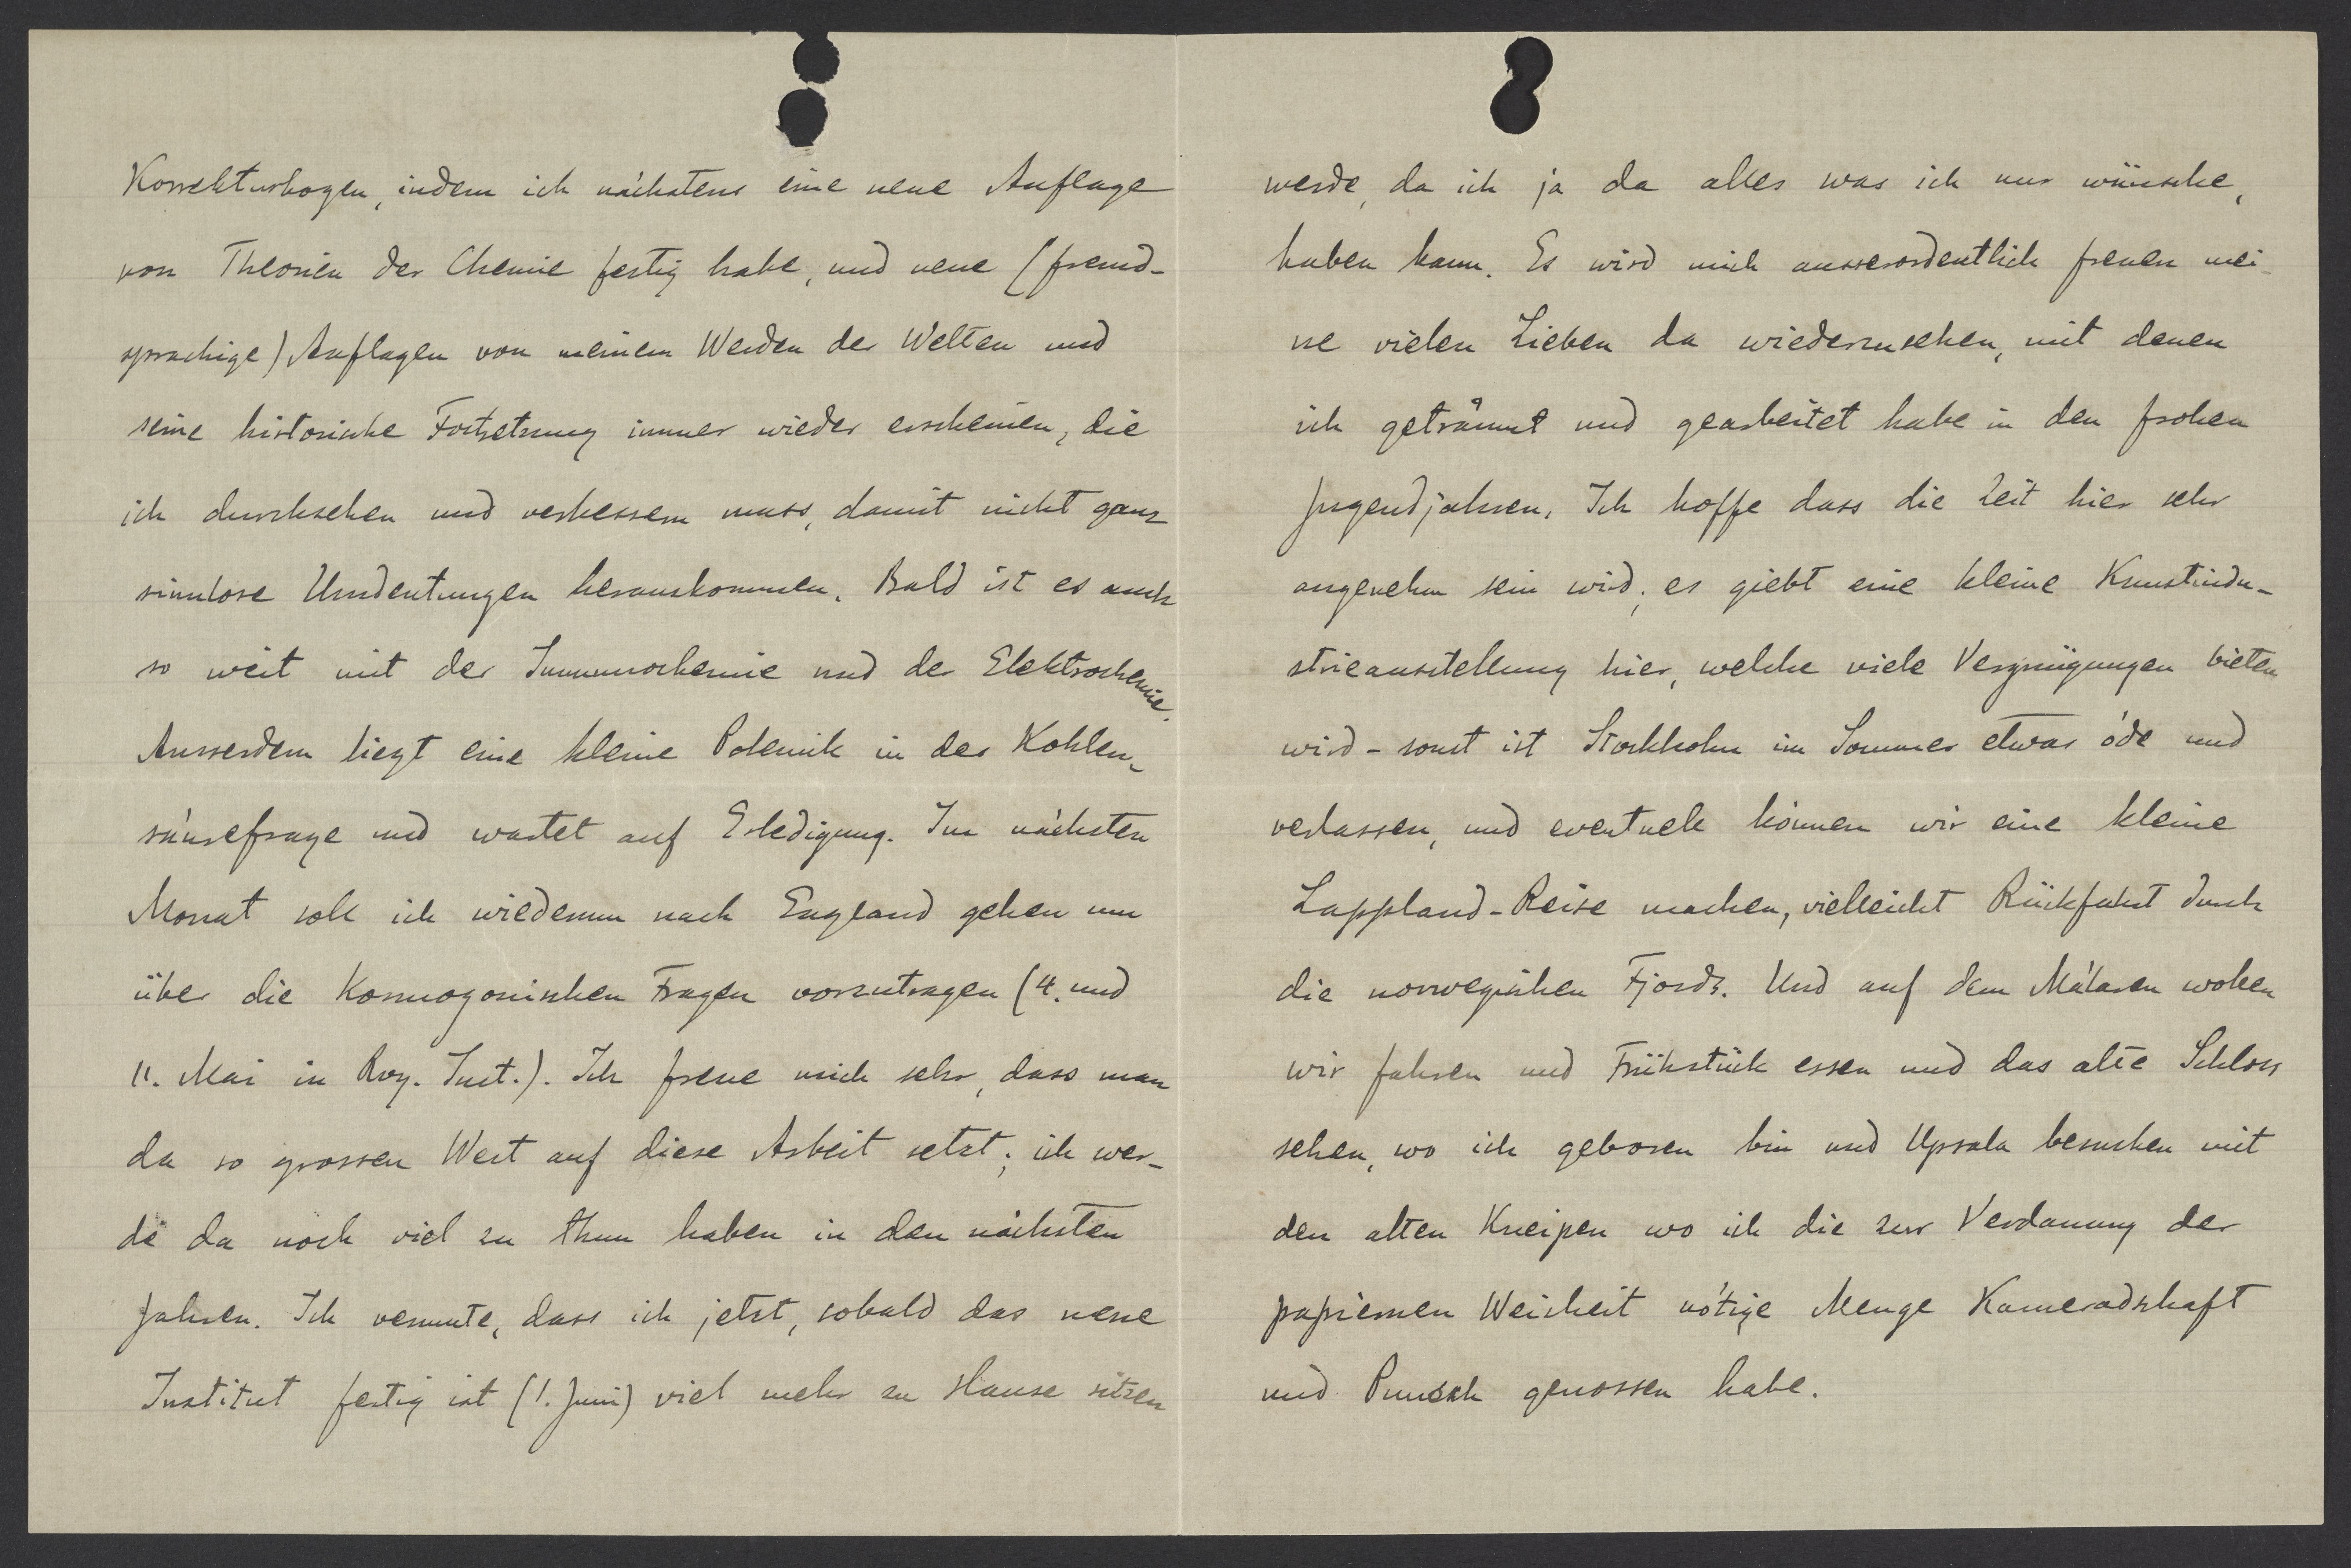 Korrekturbogen, indem ich nächstens eine neue Auflage
von Theorien der Chemie fertig habe, und neue (fremd-
sprachige) Auflagen von meinem Werden der Welten und
seine historische Fortsetzung immer wieder erscheinen, die
ich durchsehen und verbessern muss, damit nicht ganz
sinnlose Umdeutungen herauskommen. Bald ist es auch
so weit mit der Immunochemie und der Elektrochemie.
Ausserdem liegt eine kleine Polemik in der Kohlen-
säurefrage und wartet auf Erledigung. Im nächsten
Monat soll ich wiederum nach England gehen um
über die Kosmogonischen Fragen vorzutragen (4. und
11. Mai in Roy. Inst.). Ich freue mich sehr, dass man
da so grossen Wert auf diese Arbeit setzt; ich wer-
de da noch viel zu thun haben in den nächsten
Jahren. Ich vermute, dass ich jetzt, sobald das neue
Institut fertig ist (1. Juni) viel mehr zu Hause sitzen
werde, da ich ja da alles was ich nur wünsche,
haben kann. Es wird mich ausserordentlich freuen mei-
ne vielen Lieben da wiederzusehen, mit denen
ich geträumt und gearbeitet habe in den frohen
Jugendjahren. Ich hoffe dass die Zeit hier sehr
angenehm sein wird; es giebt eine kleine Kunstindu-
strieausstellung hier, welche viele Vergnügungen bieten
wird - sonst ist Stockholm im Sommer etwas öde und
verlassen, und eventuell können wir eine kleine
Lappland-Reise machen, vielleicht Rückfahrt durch
die norwegischen Fjords. Und auf dem Mälaren wollen
wir fahren und Frühstück essen und das alte Schloss
sehen, wo ich geboren bin und Upsala besuchen mit
den alten Kneipen wo ich die zur Verdauung der
papiernen Weisheit nötige Menge Kameradshaft
und Punsch genossen habe.